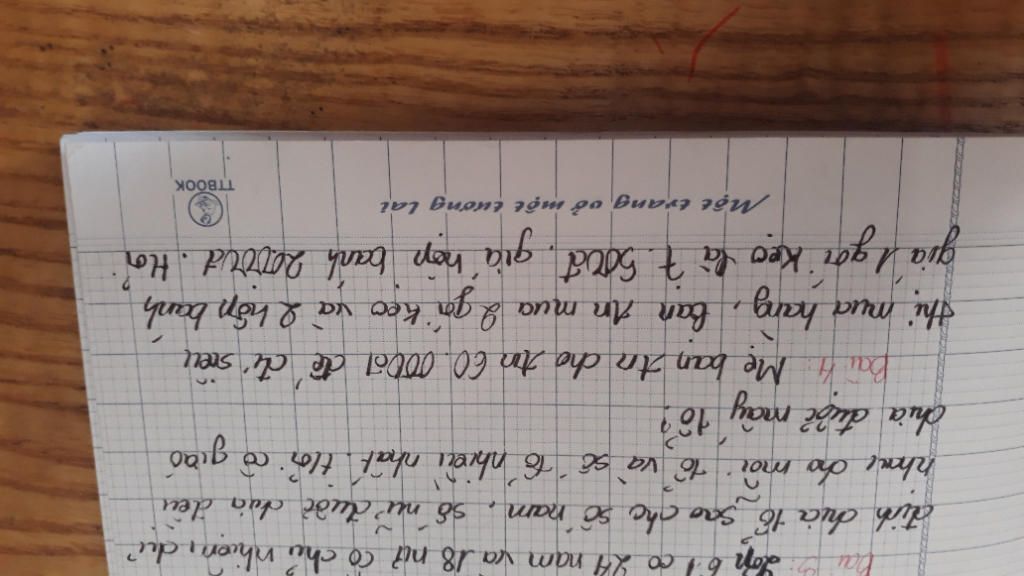 Bài 3: Lớp 6.1 có 24 nam và 18 nữ có chủ nhiệm, dự
định chia tổ sao cho số nam, số nữ được chia đều
nhau cho mỗi tổ và số tổ nhiều nhất. Hỏi cô giáo
chia được mấy tổ?
Bài 4: Mẹ bạn An cho An 60.000đ để đi siêu
thị mua hàng, Bạn An mua 2 gói kẹo và 2 hộp bánh
giá 1 gói kẹo là 7.500đ, giá hộp bánh 20000đ. Hỏi
Một trang vở một tương lai
TTBOOK